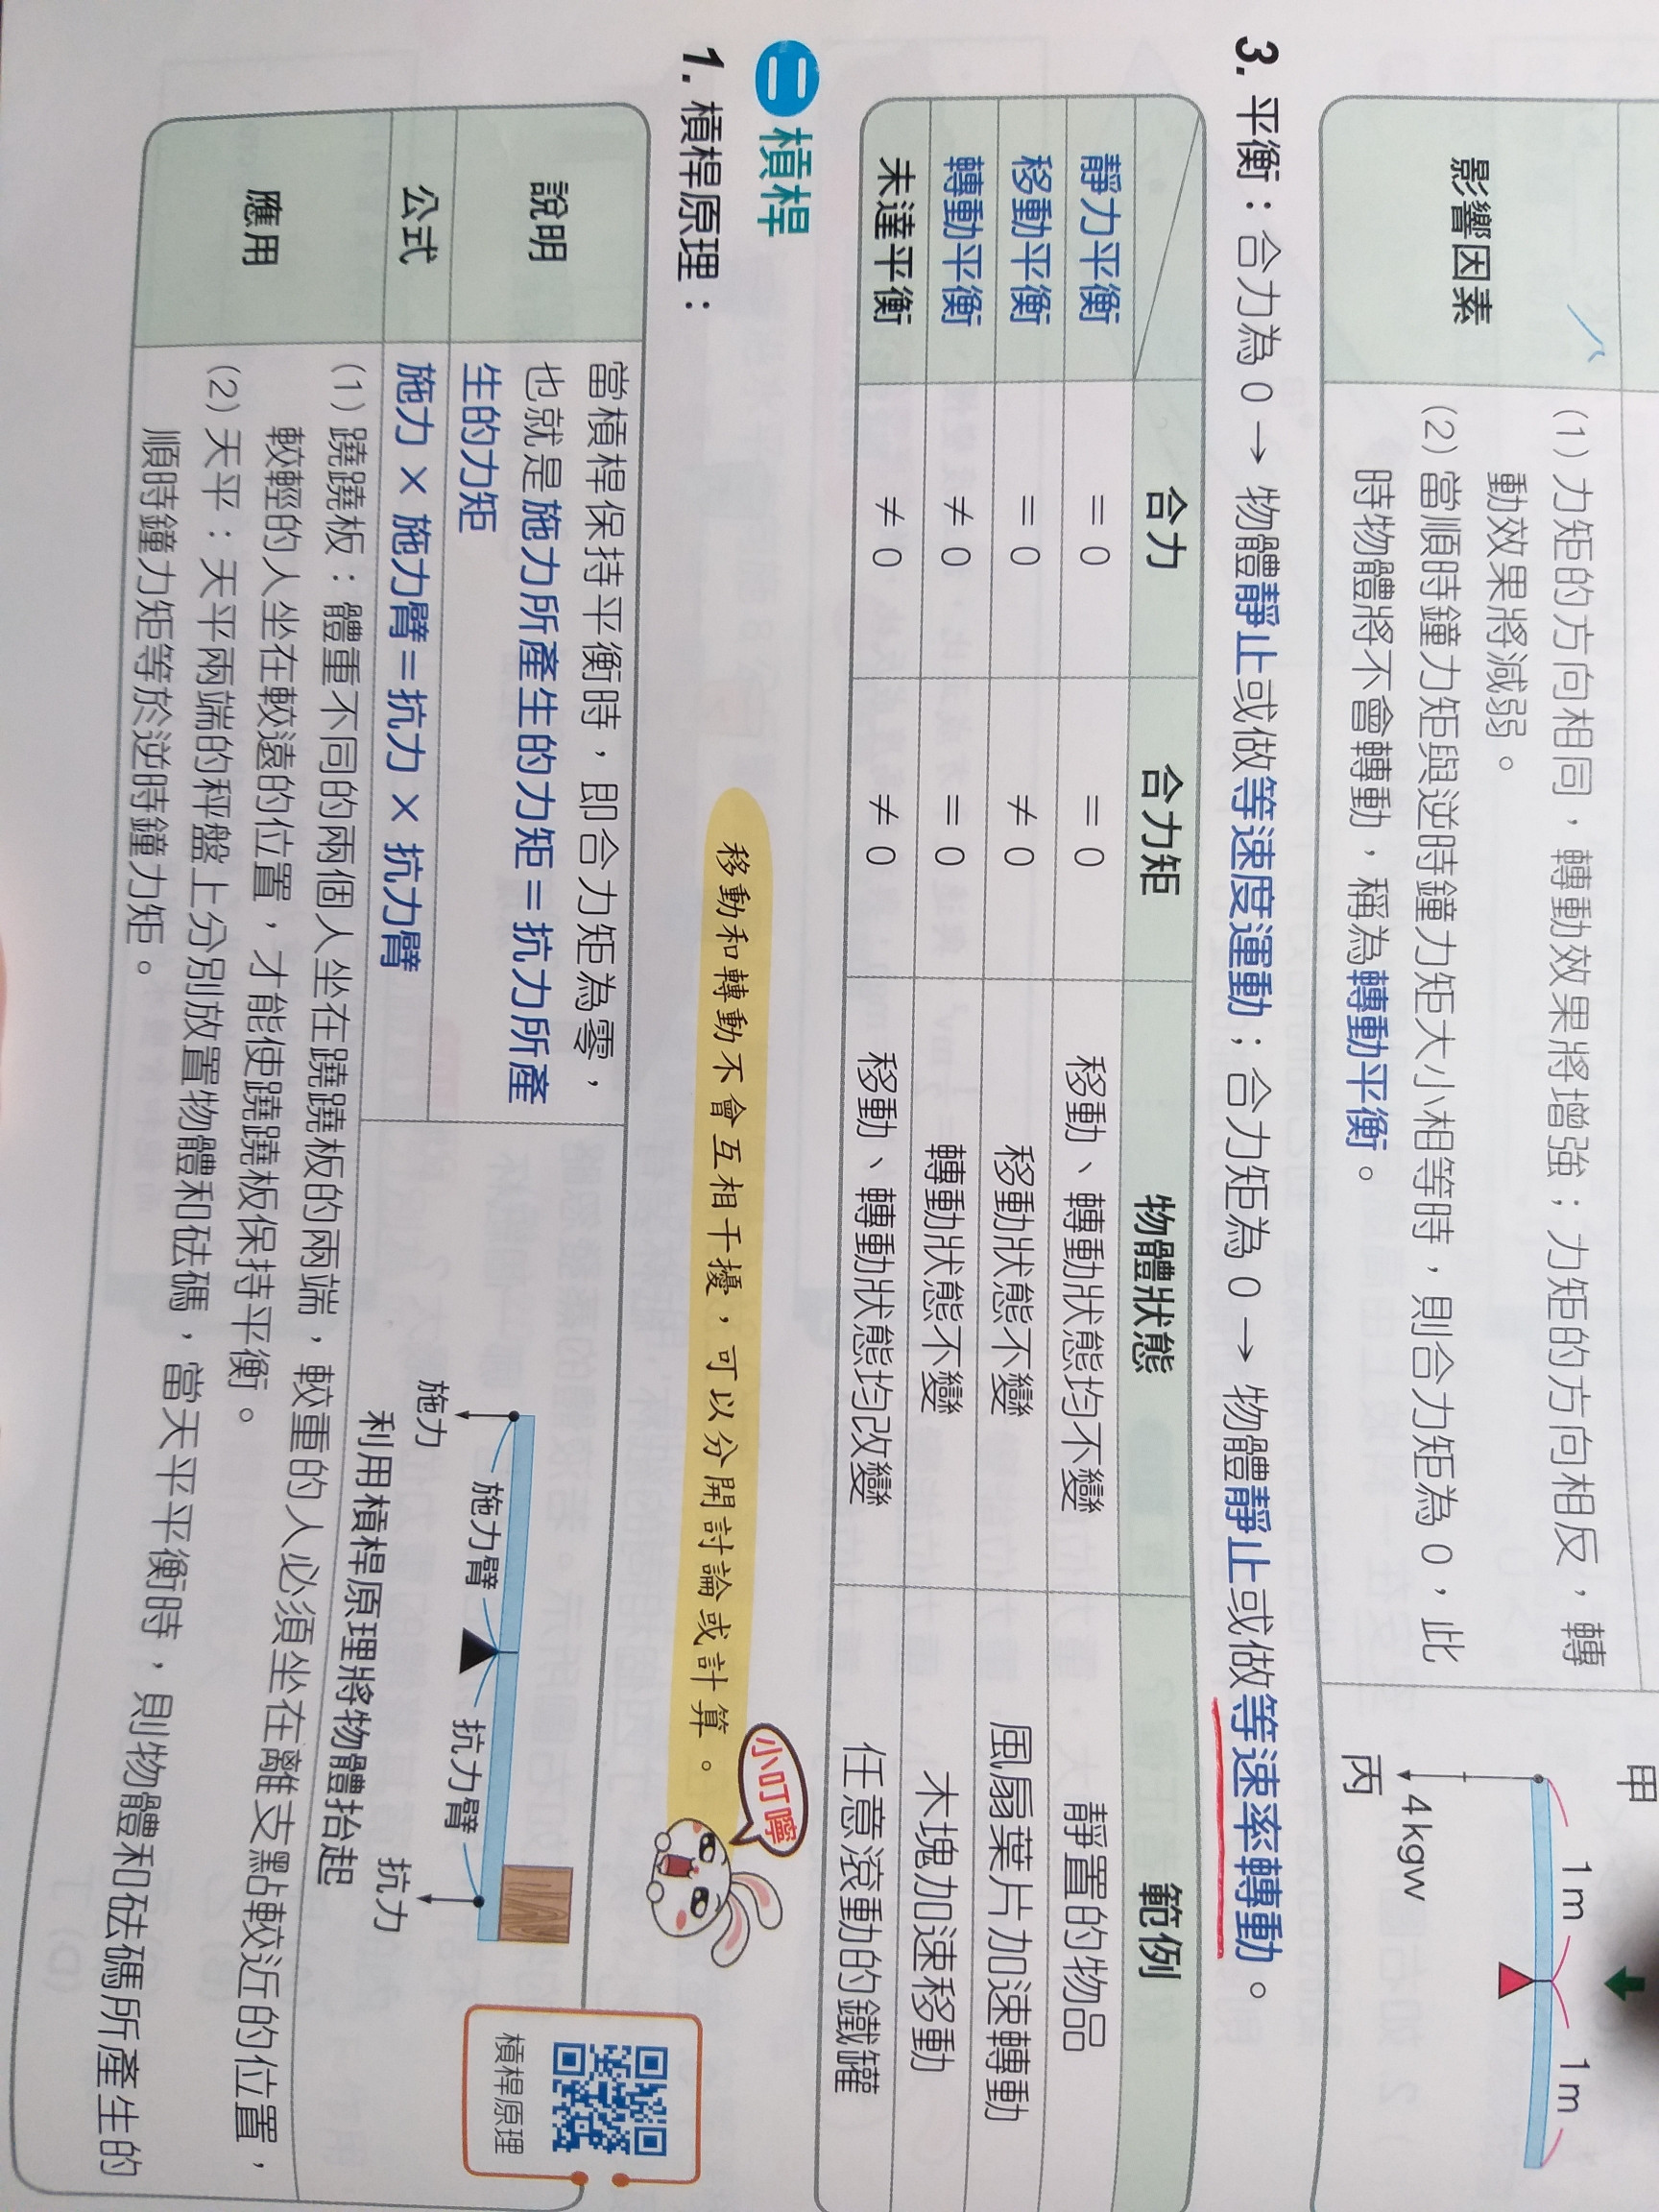 甲
影響因素
(1) 力矩的方向相同，轉動效果將增強；力矩的方向相反，轉
動效果將減弱。
(2) 當順時鐘力矩與逆時鐘力矩大小相等時，則合力矩為 0，此
時物體將不會轉動，稱為轉動平衡。
1 m
1 m
4 kgw
丙
3. 平衡：合力為 0 → 物體靜止或做等速度運動；合力矩為 0 → 物體靜止或做等速率轉動。
合力 合力矩 物體狀態 範例
靜力平衡 = 0 = 0 移動、轉動狀態均不變 靜置的物品
移動平衡 = 0 ≠ 0 移動狀態不變 風扇葉片加速轉動
轉動平衡 ≠ 0 = 0 轉動狀態不變 木塊加速移動
未達平衡 ≠ 0 ≠ 0 移動、轉動狀態均改變 任意滾動的鐵罐
二 槓桿
小叮嚀
移動和轉動不會互相干擾，可以分開討論或計算。
1. 槓桿原理：
說明
當槓桿保持平衡時，即合力矩為零，
也就是施力所產生的力矩＝抗力所產
生的力矩
公式
施力 × 施力臂＝抗力 × 抗力臂
施力臂
抗力臂
施力
抗力
利用槓桿原理將物體抬起
槓桿原理
應用
(1) 蹺蹺板：體重不同的兩個人坐在蹺蹺板的兩端，較重的人必須坐在離支點較近的位置，
較輕的人坐在較遠的位置，才能使蹺蹺板保持平衡。
(2) 天平：天平兩端的秤盤上分別放置物體和砝碼，當天平平衡時，則物體和砝碼所產生的
順時鐘力矩等於逆時鐘力矩。